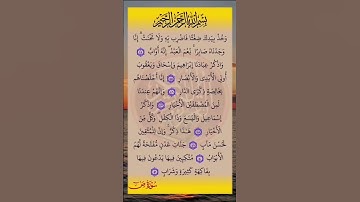 بِسْمِ اللَّهِ الرَّحْمَٰنِ الرَّحِيمِ
وَخُذْ بِيَدِكَ ضِغْثًا فَاضْرِب بِّهِ وَلَا تَحْنَثْ إِنَّا
وَجَدْنَاهُ صَابِرًا نِّعْمَ الْعَبْدُ إِنَّهُ أَوَّابٌ ٤٤
وَاذْكُرْ عِبَادَنَا إِبْرَاهِيمَ وَإِسْحَاقَ وَيَعْقُوبَ
أُولِي الْأَيْدِي وَالْأَبْصَارِ ٤٥ إِنَّا أَخْلَصْنَاهُم
بِخَالِصَةٍ ذِكْرَى الدَّارِ ٤٦ وَإِنَّهُمْ عِندَنَا
لَمِنَ الْمُصْطَفَيْنَ الْأَخْيَارِ ٤٧ وَاذْكُرْ
إِسْمَاعِيلَ وَالْيَسَعَ وَذَا الْكِفْلِ وَكُلٌّ مِّنَ
الْأَخْيَارِ ٤٨ هَٰذَا ذِكْرٌ وَإِنَّ لِلْمُتَّقِينَ
لَحُسْنَ مَآبٍ ٤٩ جَنَّاتِ عَدْنٍ مُّفَتَّحَةً لَّهُمُ
الْأَبْوَابُ ٥٠ مُتَّكِئِينَ فِيهَا يَدْعُونَ فِيهَا
بِفَاكِهَةٍ كَثِيرَةٍ وَشَرَابٍ ٥١
سُورَةُ ص